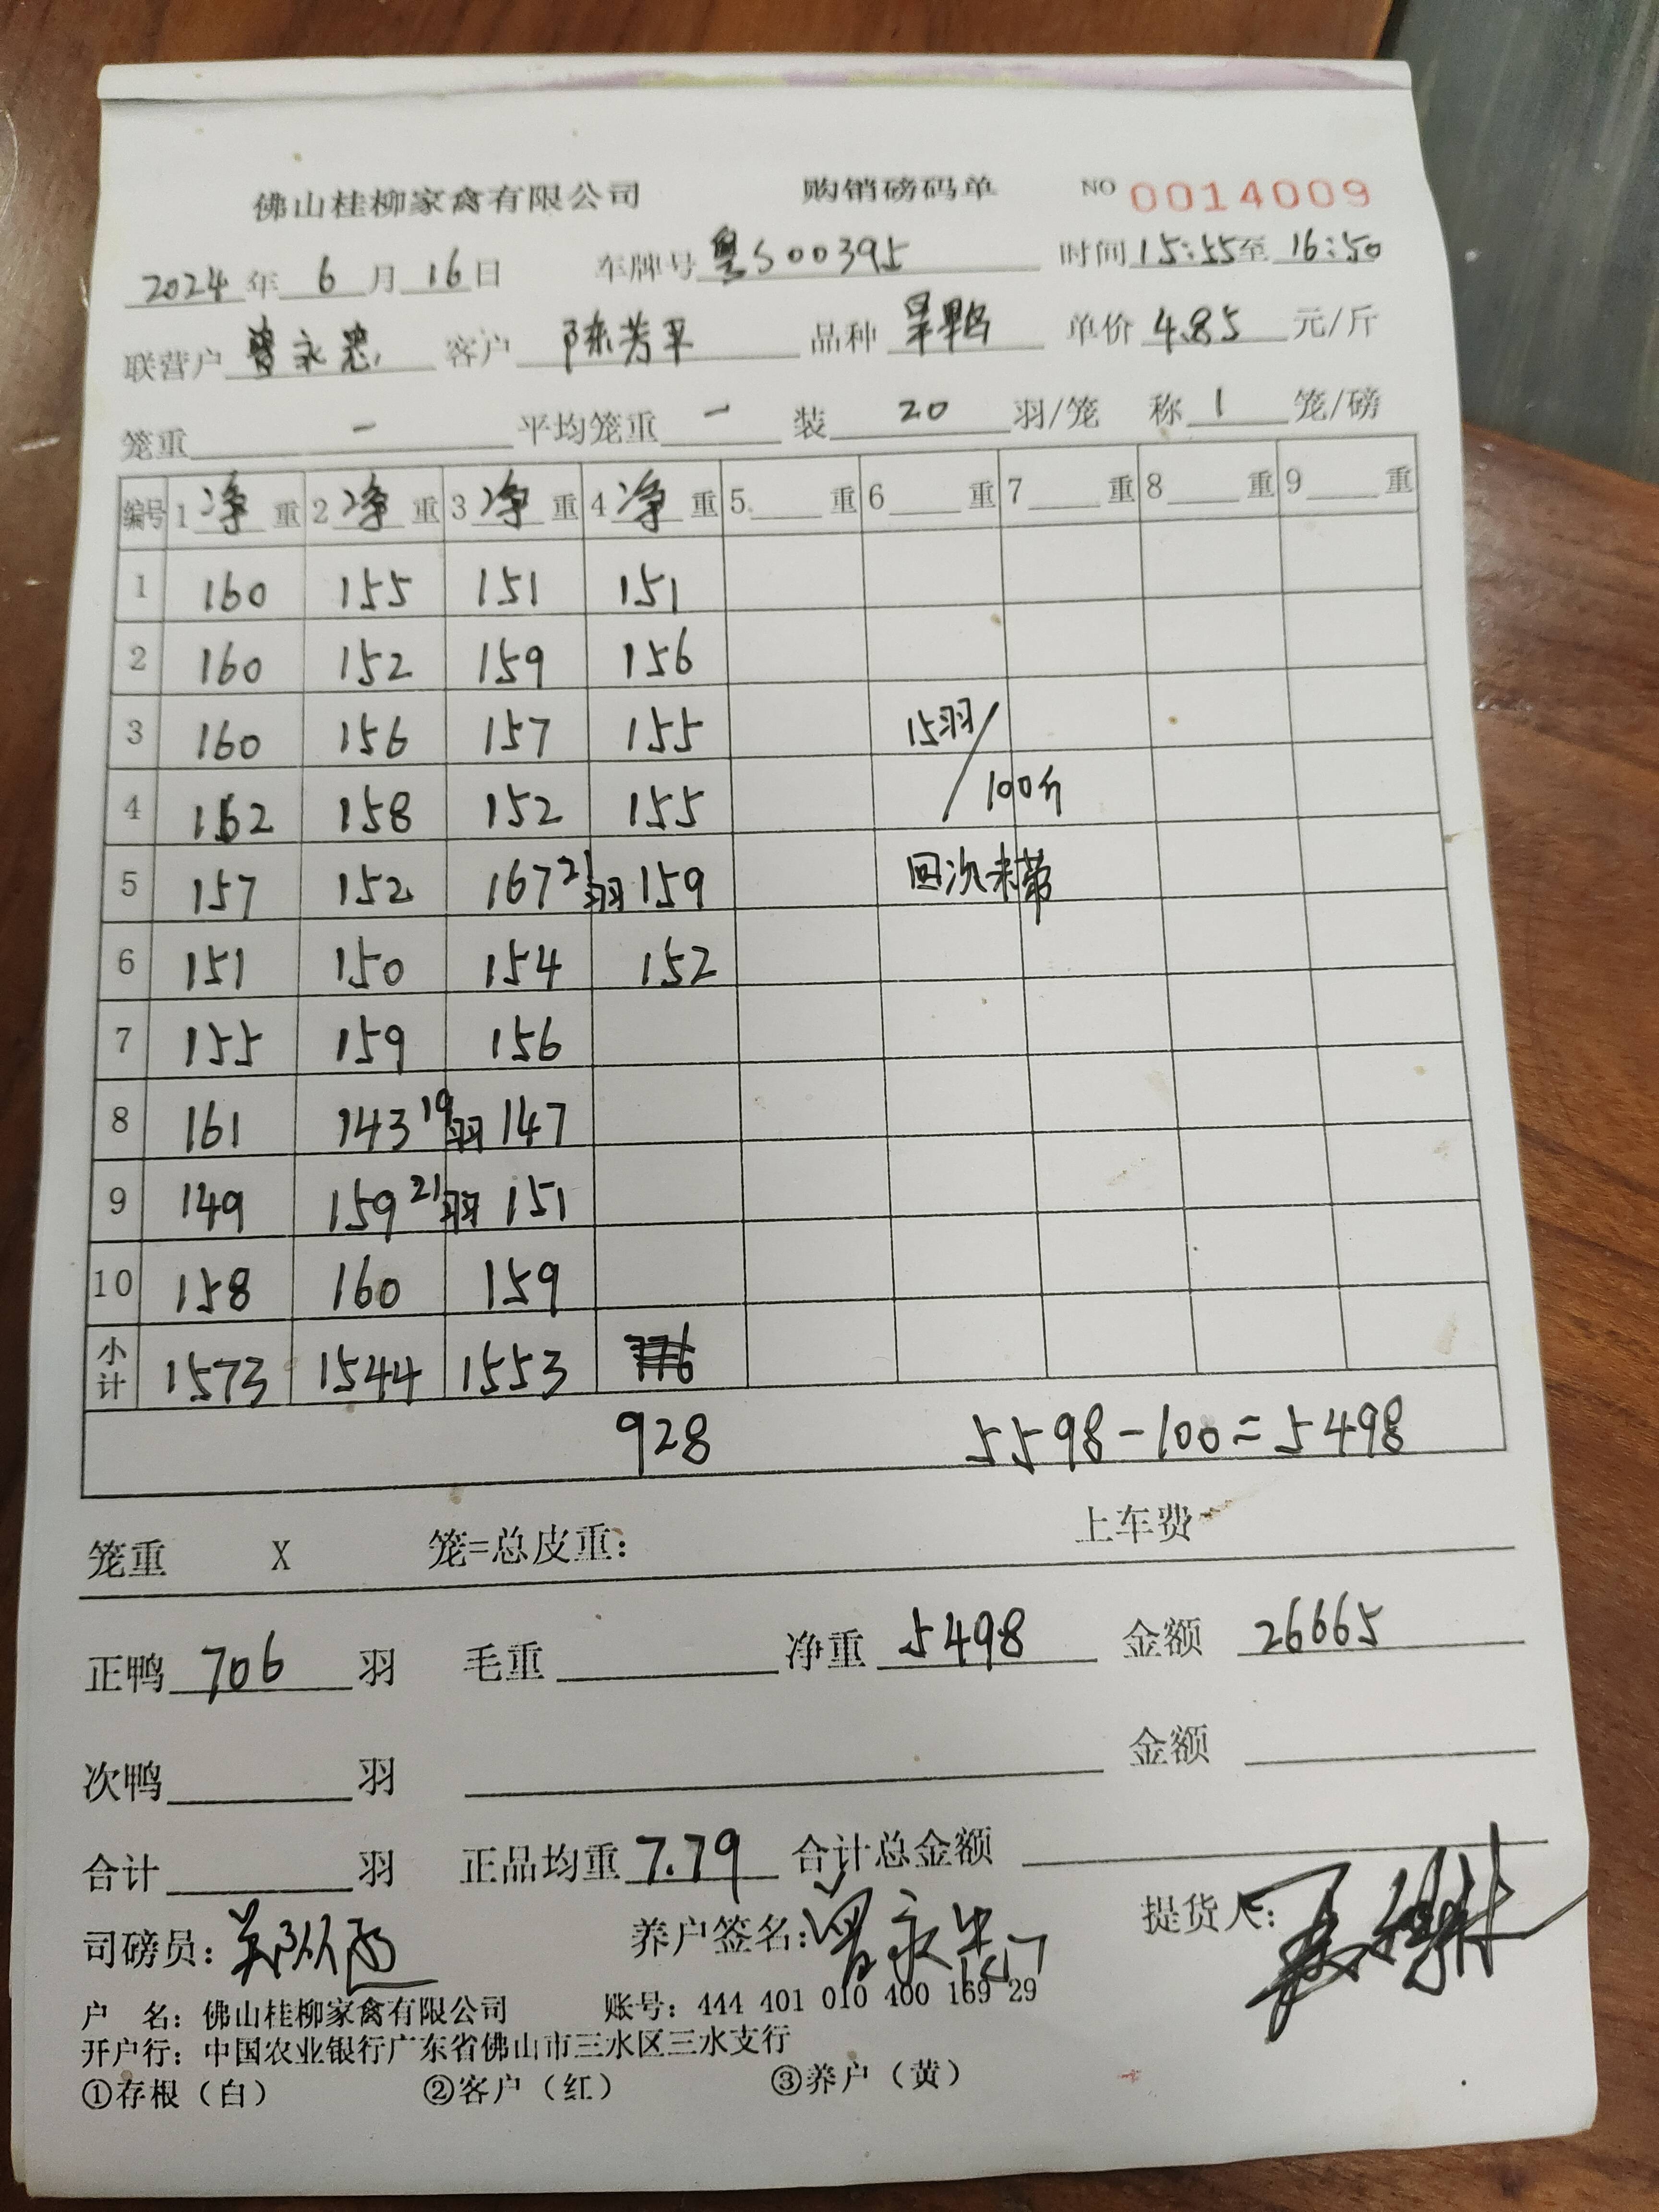 佛山桂柳家禽有限公司 购销磅码单 NO 0014009
2024年 6月 16日 车牌号 粤S00395 时间 15:55至 16:50
联营户 曾永忠 客户 陈芳平 品种 旱鸭 单价 4.85 元/斤
笼重 - 平均笼重 - 装 20 羽/笼 称 1 笼/磅
编号 1净重 2净重 3净重 4净重 5 重 6 重 7 重 8 重 9 重
1 160 155 151 151
2 160 152 159 156
3 160 156 157 155 15羽/
4 162 158 152 155 100斤
5 157 152 167 21羽 159 回次未带
6 151 150 154 152
7 155 159 156
8 161 143 19羽 147
9 149 159 21羽 151
10 158 160 159
小计 1573 1544 1553
928 5598-100=5498
笼重 X 笼=总皮重: 上车费
正鸭 706 羽 毛重 净重 5498 金额 26665
次鸭 羽 金额
合计 羽 正品均重 7.79 合计总金额
司磅员: 养户签名: 曾永忠 提货人:
户 名: 佛山桂柳家禽有限公司 账号: 444 401 010 400 169 29
开户行: 中国农业银行广东省佛山市三水区三水支行
①存根(白) ②客户(红) ③养户(黄)